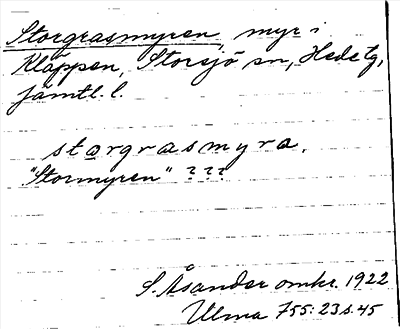 Storgrasmyren, myr i
Kläppen, Storsjö sn, Hede tg,
Jämtl. l.
stargrasmyra.
"Stormyren" ???
S. Åsander omkr. 1922
Ulma 755:23 s. 45